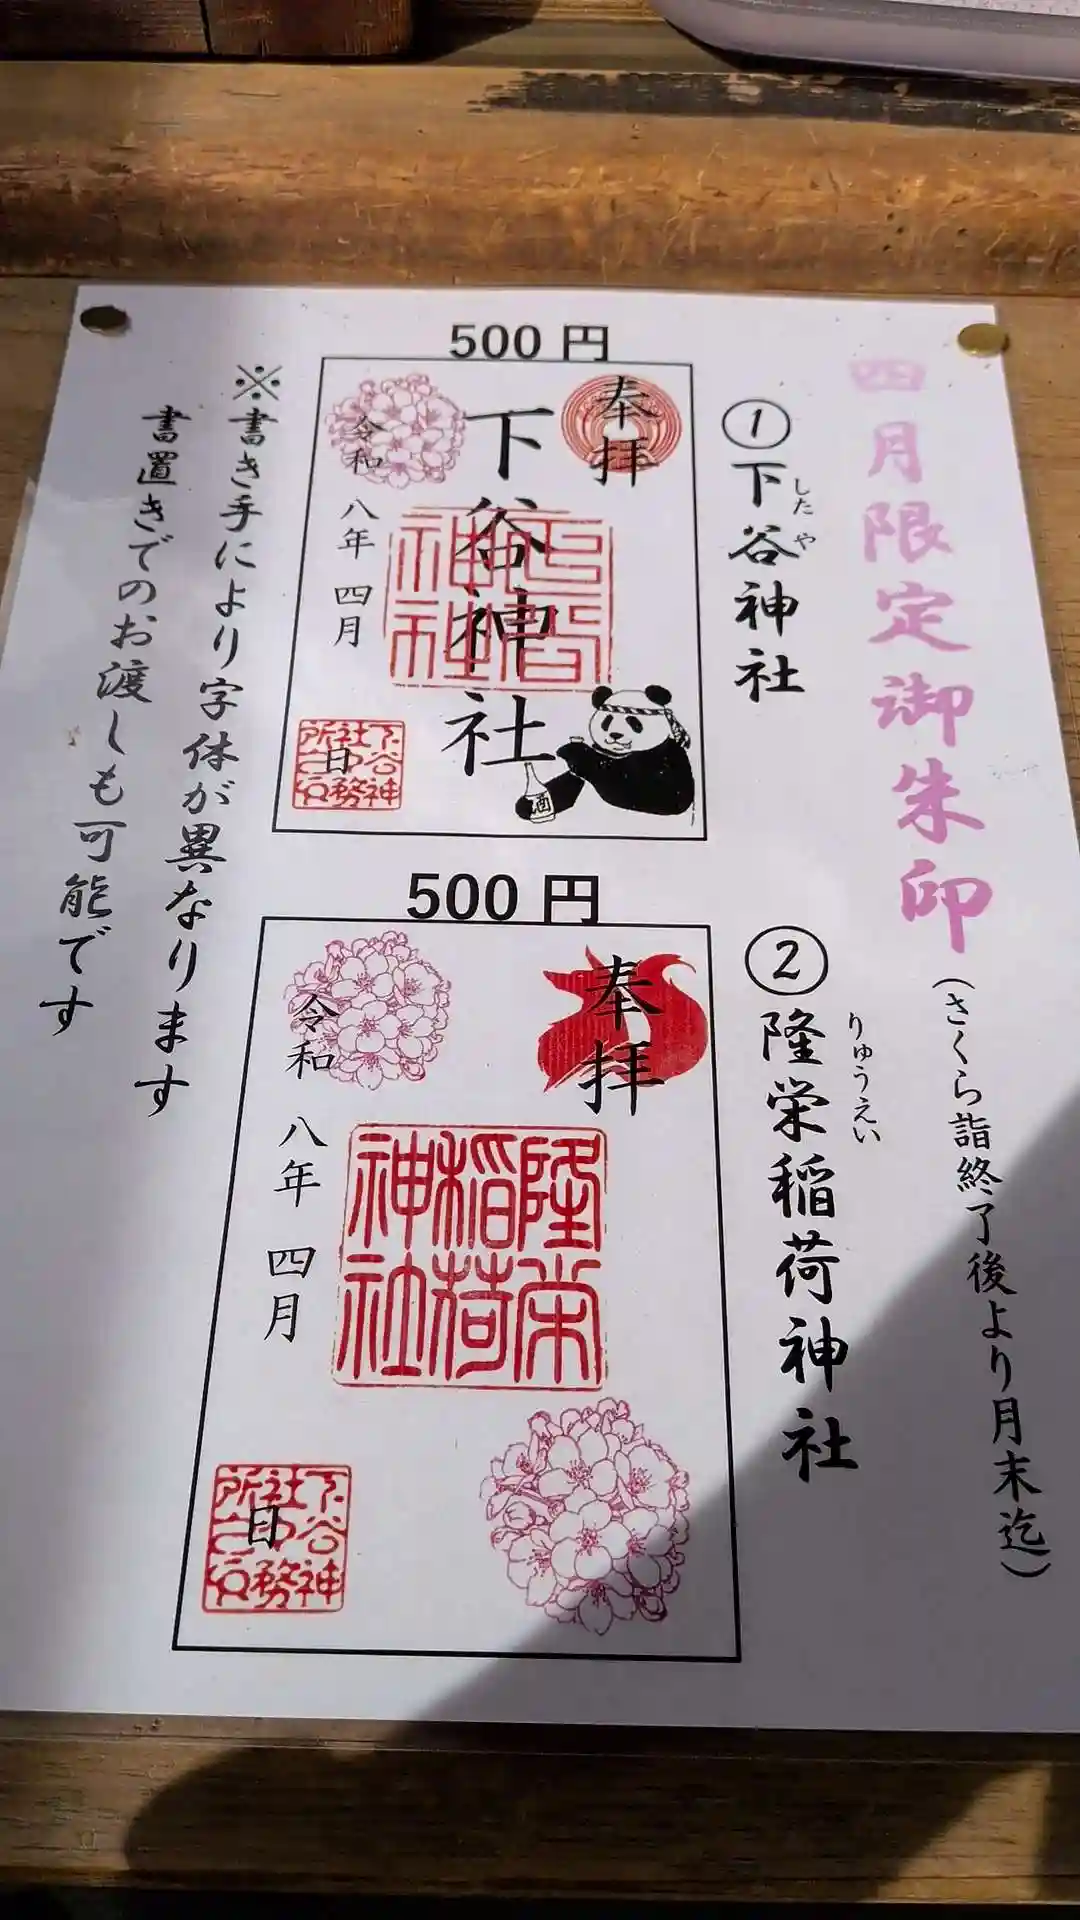 四月限定御朱印(さくら詣終了後より月末迄)
①下谷神社
したや
500円
奉拝
下谷神社
令和八年 四月
日
酒
下谷神社
社務所印
②隆栄稲荷神社
りゅうえい
500円
奉拝
隆栄稲荷神社
令和八年 四月
日
下谷神社
社務所印
※書き手により字体が異なります
書置きでのお渡しも可能です